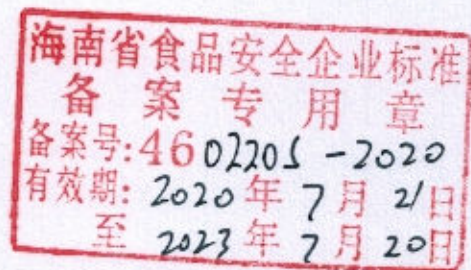 海南省食品安全企业标准
备案专用章
备案号:4602205-2020
有效期:2020年7月21日
至2023年7月20日